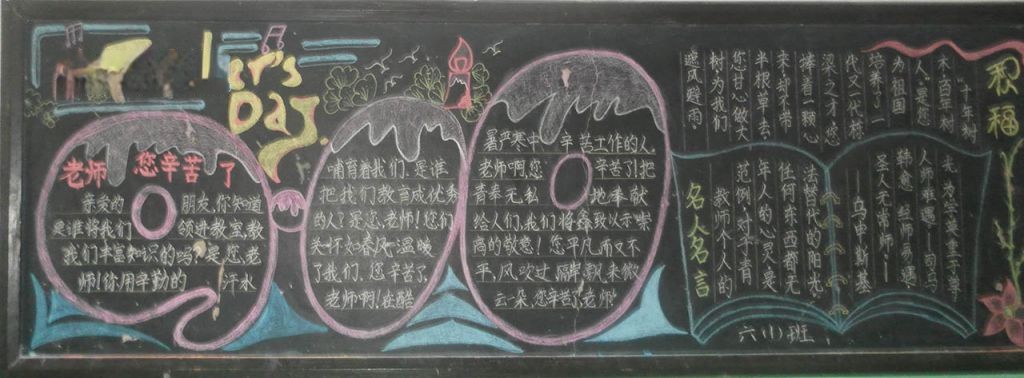 er's
Day
老师 您辛苦了
亲爱的 朋友,你知道
是谁将我们 领进教室,教
我们丰富知识的吗?是您,老
师!你用辛勤的 汗水
哺育着我们.是谁
把我们教育成优秀
的人?是您,老师!您们
温暖
了我们.您辛苦了
老师啊!在酷
暑严寒中 辛苦工作的人.
老师啊,您 辛苦了!把
青春无私 地奉献
给人们,我们将
的敬意!您平凡而又不
平,风吹过
云一朵.您辛苦了,老师!
祝福
十年树
木,百年树
人.是您
为祖国
培养了一
代又一代栋
梁之才.您
捧着一颗心
来,却不带
半根草去.
您甘心做大
树,为我们
遮风避雨.
名人名言
教师个人的
范例,对于青
年人的心灵,是
任何东西都无
法替代的阳光.
——乌申斯基
圣人无常师.——
韩愈 经师易遇,
人师难遇——司马
光
六(1)班